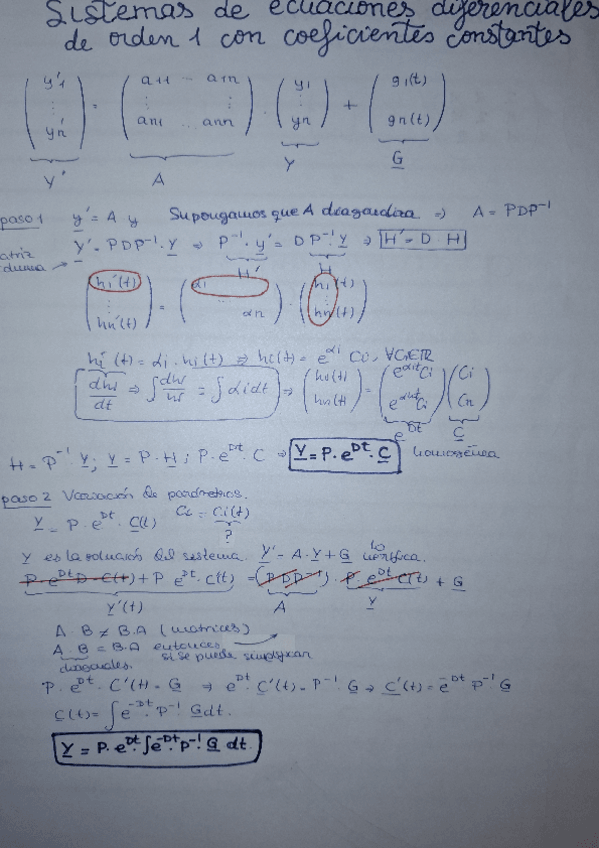 Sistemas de ecuaciones diferenciales
de orden 1 con coeficientes constantes
(y'1 ⋮ yn') = (a11 ... a1n ⋮ ⋮ an1 ... ann) · (y1 ⋮ yn) + (g1(t) gn(t))
Y' A Y G
paso 1 y' = A y Supongamos que A diagonaliza ⇒ A = PDP⁻¹
Y' = PDP⁻¹·Y ⇒ P⁻¹·y' = D P⁻¹·Y ⇒ H' = D·H
H' H
(h1'(t) ⋮ hn'(t)) = (α1 ⋱ αn) · (h1(t) ⋮ hn(t))
hi'(t) = αi·hi(t) ⇒ hi(t) = e^αi Ci, ∀Ci∈ℝ
dhi/dt ⇒ ∫dhi/hi = ∫αi dt ⇒ (h1(t) hn(t)) = (e^α1t Ci e^αnt Ci) (Ci Cn)
e^Dt C
H = P⁻¹·Y ; Y = P·H ; P·e^Dt·C ⇒ Y = P·e^Dt·C homogénea
paso 2 Variación de parámetros.
Y = P·e^Dt·C(t) Ci = Ci(t)
?
Y es la solución del sistema. Y' = A·Y + G lo verifica.
P·e^Dt D·C(t) + P e^Dt·C'(t) = (PDP⁻¹)·P·e^Dt C(t) + G
Y'(t) A Y
A·B ≠ B·A (matrices)
A·B = B·A entonces
si se puede simplificar
diagonales.
P·e^Dt·C'(t) = G ⇒ e^Dt·C'(t) = P⁻¹ G ⇒ C'(t) = e^-Dt P⁻¹ G
C(t) = ∫e^-Dt·P⁻¹ G dt.
Y = P·e^Dt·∫e^-Dt·P⁻¹·G dt.